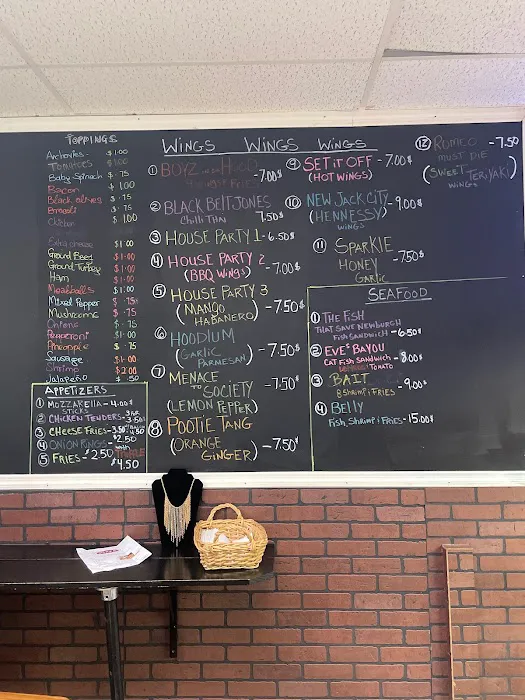 TOPPINGS
Anchovies $1.00
Tomatoes $1.00
Baby Spinach $.75
Bacon $1.00
Black olives $.75
Broccoli $.75
Chicken $1.00
Extra cheese $1.00
Ground Beef $1.00
Ground Turkey $1.00
Ham $1.00
Meatballs $1.00
Mixed Pepper $.75
Mushrooms $.75
Onions $.75
Pepperoni $1.00
Pineapple $.75
Sausage $1.00
Shrimp $2.00
Jalapeño $.50
APPETIZERS
① MOZZARELLA - 4.00$
STICKS
② CHICKEN TENDERS -
③ CHEESE FRIES -3.50
④ ONION RINGS - $2.50
⑤ FRIES - $2.50
$4.50
WINGS WINGS WINGS
① BOYZ IN THE HOOD -7.00$
② BLACK BELT JONES
CHILI THAI 7.50$
③ HOUSE PARTY 1 -6.50$
④ HOUSE PARTY 2
(BBQ WINGS) -7.00$
⑤ HOUSE PARTY 3
(MANGO HABANERO) -7.50$
⑥ HOODLUM
(GARLIC PARMESAN) -7.50$
⑦ MENACE TO SOCIETY -7.50$
(LEMON PEPPER)
⑧ POOTIE TANG
(ORANGE GINGER) -7.50$
⑨ SET IT OFF - 7.00$
(HOT WINGS)
⑩ NEW JACK CITY -9.00$
(HENNESSY)
WINGS
⑪ SPARKLE
HONEY -7.50$
GARLIC
⑫ ROMEO -7.50
MUST DIE
(SWEET TERIYAKI)
WINGS
SEAFOOD
① THE FISH
THAT SAVE NEWBURGH
FISH SANDWICH - 6.50$
② EVE'S BAYOU
CAT FISH SANDWICH - 8.00$
TOMATO
③ BAIT -9.00$
8 Shrimp & FRIES
④ BELLY
FISH, SHRIMP & FRIES -15.00$